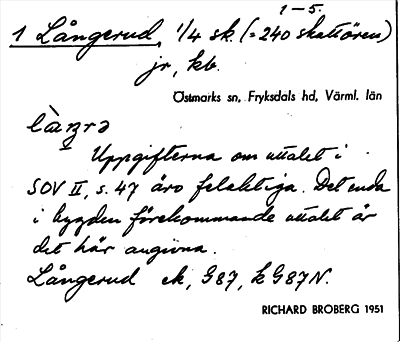 1–5.
1 Långerud, 1/4 sk. (=240 skattören)
jr, kb.
Östmarks sn, Fryksdals hd, Värml. län
làŋrə
Uppgifterna om uttalet i
SOV II, s. 47 äro felaktiga. Det enda
i bygden förekommande uttalet är
det här angivna.
Långerud ek, G87, kG87N.
RICHARD BROBERG 1951